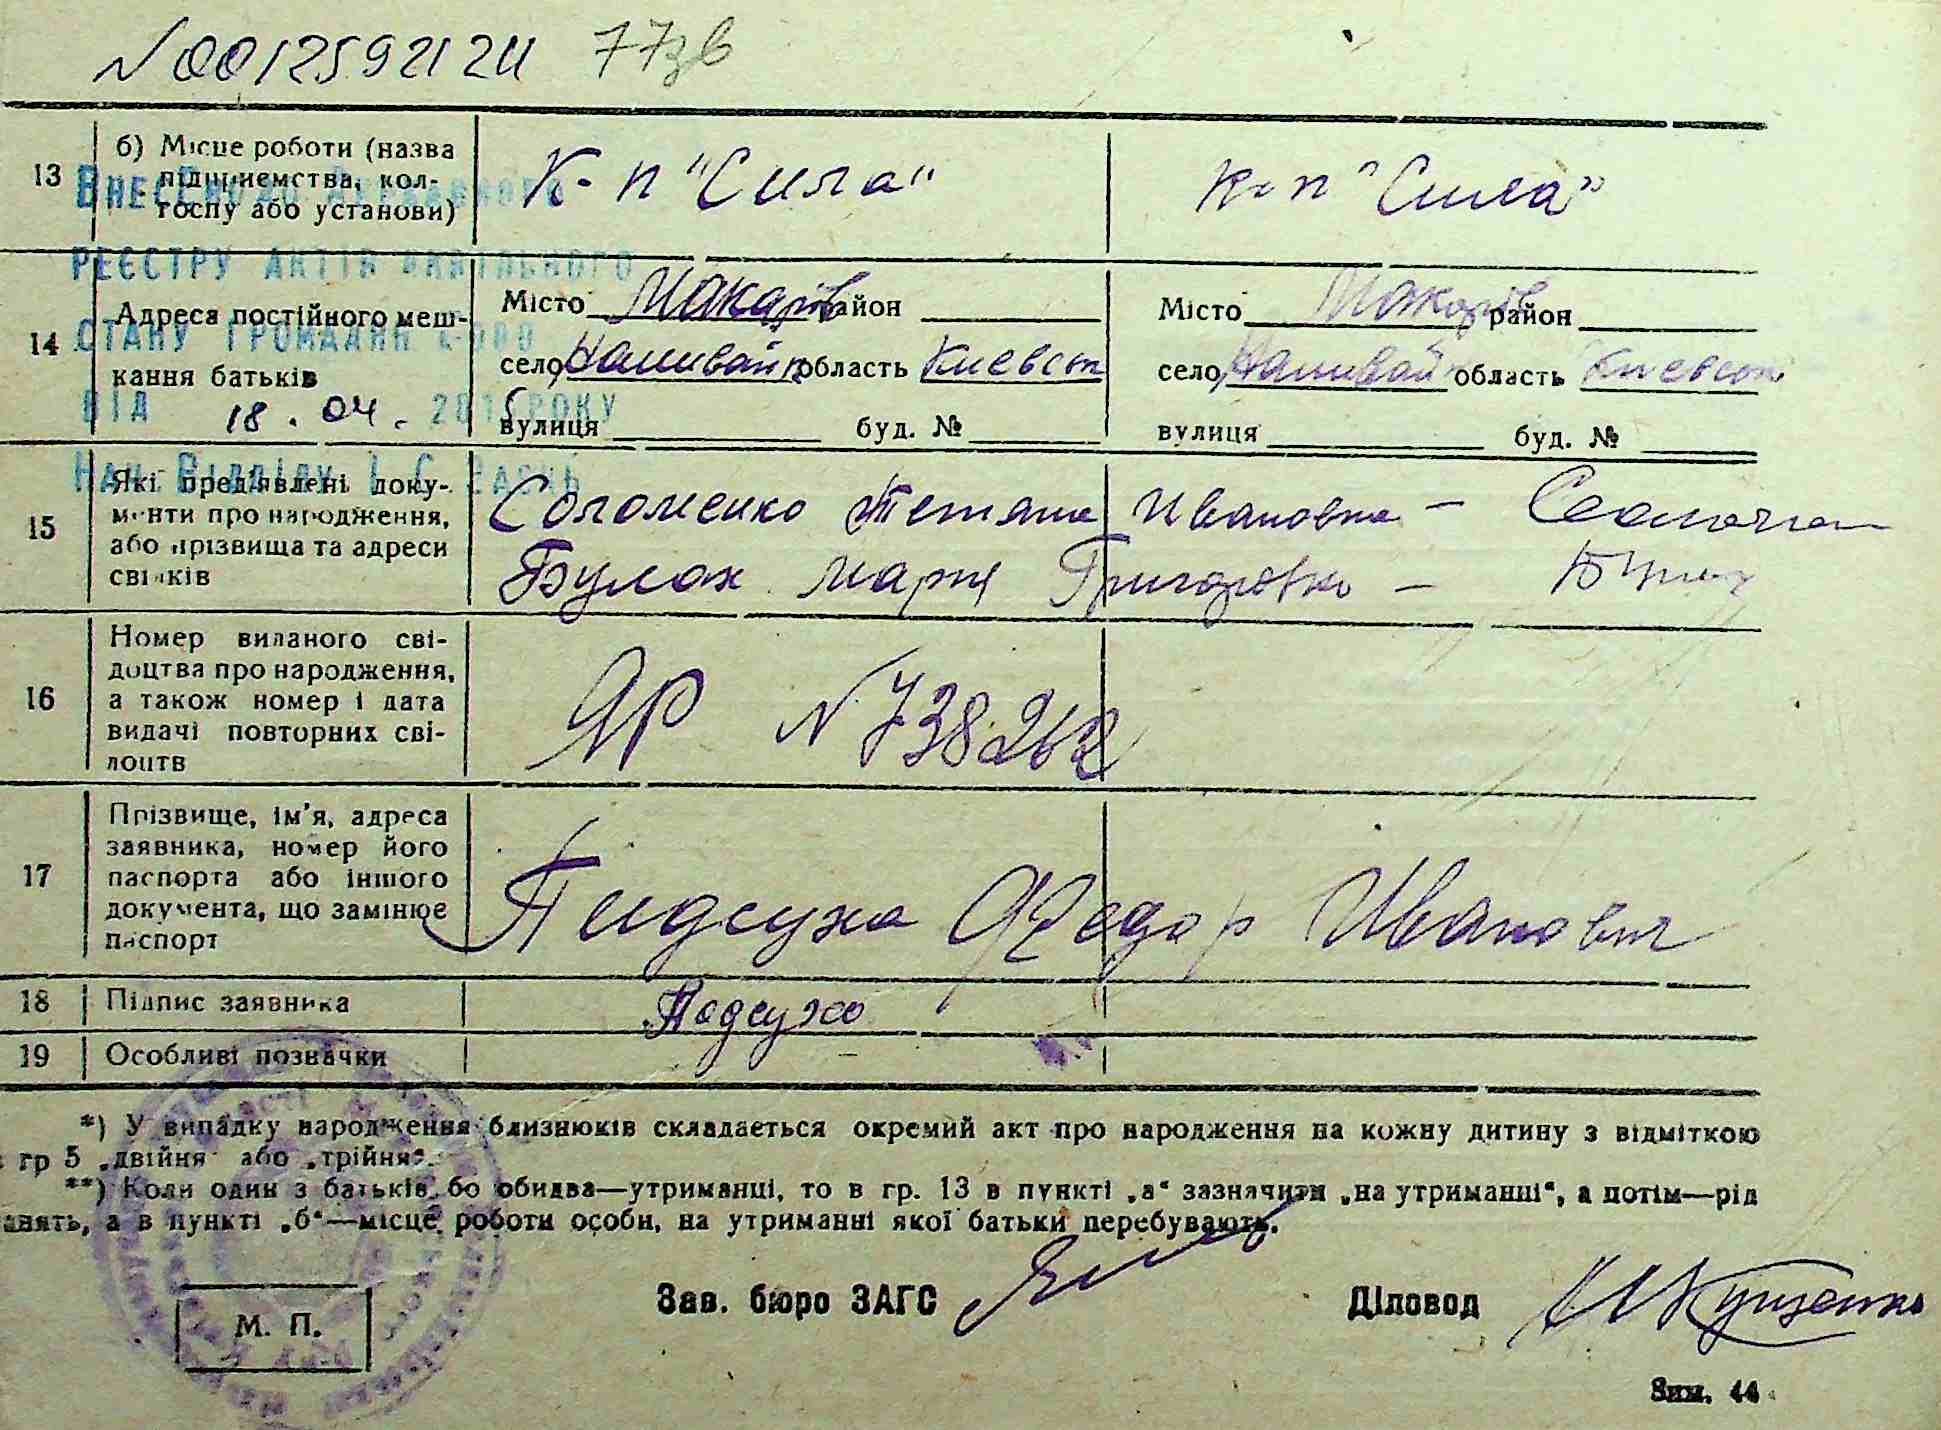 N 00125921211 77зв
13 б) Місце роботи (назва підприємства, колгоспу або установи)
К-п "Сила" К-п "Сила"
Внесено до Державного
реєстру актів цивільного
стану громадян
від 18.04. 2015 року
Нач. Відділу
14 Адреса постійного мешкання батьків
Місто Макарів район
село Наливайк область Киевськ
вулиця буд. №
Місто Макарів район
село Наливай область Киевськ
вулиця буд. №
15 Які пред'явлені документи про народження, або прізвища та адреси свідків
Соломенко Тетяна Ивановна –
Булах Мария Григоровна –
16 Номер виданого свідоцтва про народження, а також номер і дата видачі повторних свідоцтв
ЯР N 738262
17 Прізвище, ім'я, адреса заявника, номер його паспорта або іншого документа, що замінює паспорт
Пидсуха Федор Иванович
18 Підпис заявника
19 Особливі позначки
*) У випадку народження близнюків складається окремий акт про народження на кожну дитину з відміткою
гр 5 „двійня" або „трійня".
**) Коли один з батьків бо обидва—утриманці, то в гр. 13 в пункті „а" зазначити „на утриманні", а потім—рід
анять, а в пункті „б"—місце роботи особи, на утриманні якої батьки перебувають.
М. П.
Зав. бюро ЗАГС
Діловод
Зим. 44